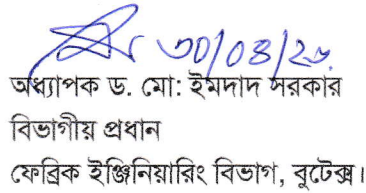 ৩০/০৪/২৬
অধ্যাপক ড. মো: ইমদাদ সরকার
বিভাগীয় প্রধান
ফেব্রিক ইঞ্জিনিয়ারিং বিভাগ, বুটেক্স।